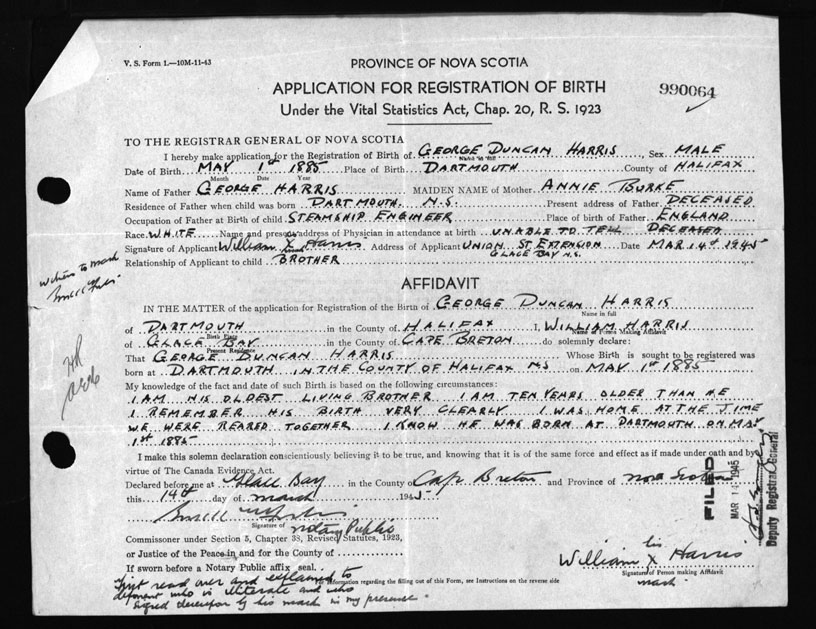 V. S. Form 1.—10M-11-43
PROVINCE OF NOVA SCOTIA
APPLICATION FOR REGISTRATION OF BIRTH
990064
Under the Vital Statistics Act, Chap. 20, R. S. 1923
TO THE REGISTRAR GENERAL OF NOVA SCOTIA
I hereby make application for the Registration of Birth of GEORGE DUNCAN HARRIS, Sex MALE
Name in full
Date of Birth MAY 1st 1885 Place of Birth DARTMOUTH County of HALIFAX
Month Date Year
Name of Father GEORGE HARRIS MAIDEN NAME of Mother ANNIE BURKE
Residence of Father when child was born DARTMOUTH. N.S. Present address of Father DECEASED
Occupation of Father at Birth of child STEAMSHIP ENGINEER Place of birth of Father ENGLAND
Race WHITE Name and present address of Physician in attendance at birth UNABLE TO TELL DECEASED
Signature of Applicant William X Harris Address of Applicant UNION ST EXTENSION Date MAR 14th 1945
GLACE BAY N.S.
Relationship of Applicant to child BROTHER
witness to mark
AFFIDAVIT
IN THE MATTER of the application for Registration of the Birth of GEORGE DUNCAN HARRIS
Name in full
of DARTMOUTH in the County of HALIFAX I, WILLIAM HARRIS
Birth Place Name of Person Making Affidavit
of GLACE BAY in the County of CAPE BRETON do solemnly declare:
Present Residence
That GEORGE DUNCAN HARRIS Whose Birth is sought to be registered was
born at DARTMOUTH IN THE COUNTY OF HALIFAX NS on MAY 1st 1885
My knowledge of the fact and date of such Birth is based on the following circumstances:
I AM HIS OLDEST LIVING BROTHER I AM TEN YEARS OLDER THAN HE
I REMEMBER HIS BIRTH VERY CLEARLY I WAS HOME AT THE TIME
WE WERE REARED TOGETHER I KNOW HE WAS BORN AT DARTMOUTH ON MAY
1st 1885
I make this solemn declaration conscientiously believing it to be true, and knowing that it is of the same force and effect as if made under oath and by
virtue of The Canada Evidence Act.
Declared before me at Glace Bay in the County of Cape Breton and Province of Nova Scotia
this 14th day of March 1945
Signature of Notary Public
FILED
MAR 1 1945
Deputy Registrar General
Commissioner under Section 5, Chapter 38, Revised Statutes, 1923,
or Justice of the Peace in and for the County of
his
William X Harris
Signature of Person making Affidavit
mark
If sworn before a Notary Public affix seal.
For information regarding the filling out of this Form, see Instructions on the reverse side
first read over and explained to
deponent who is illiterate and who
signed by his mark in my presence.